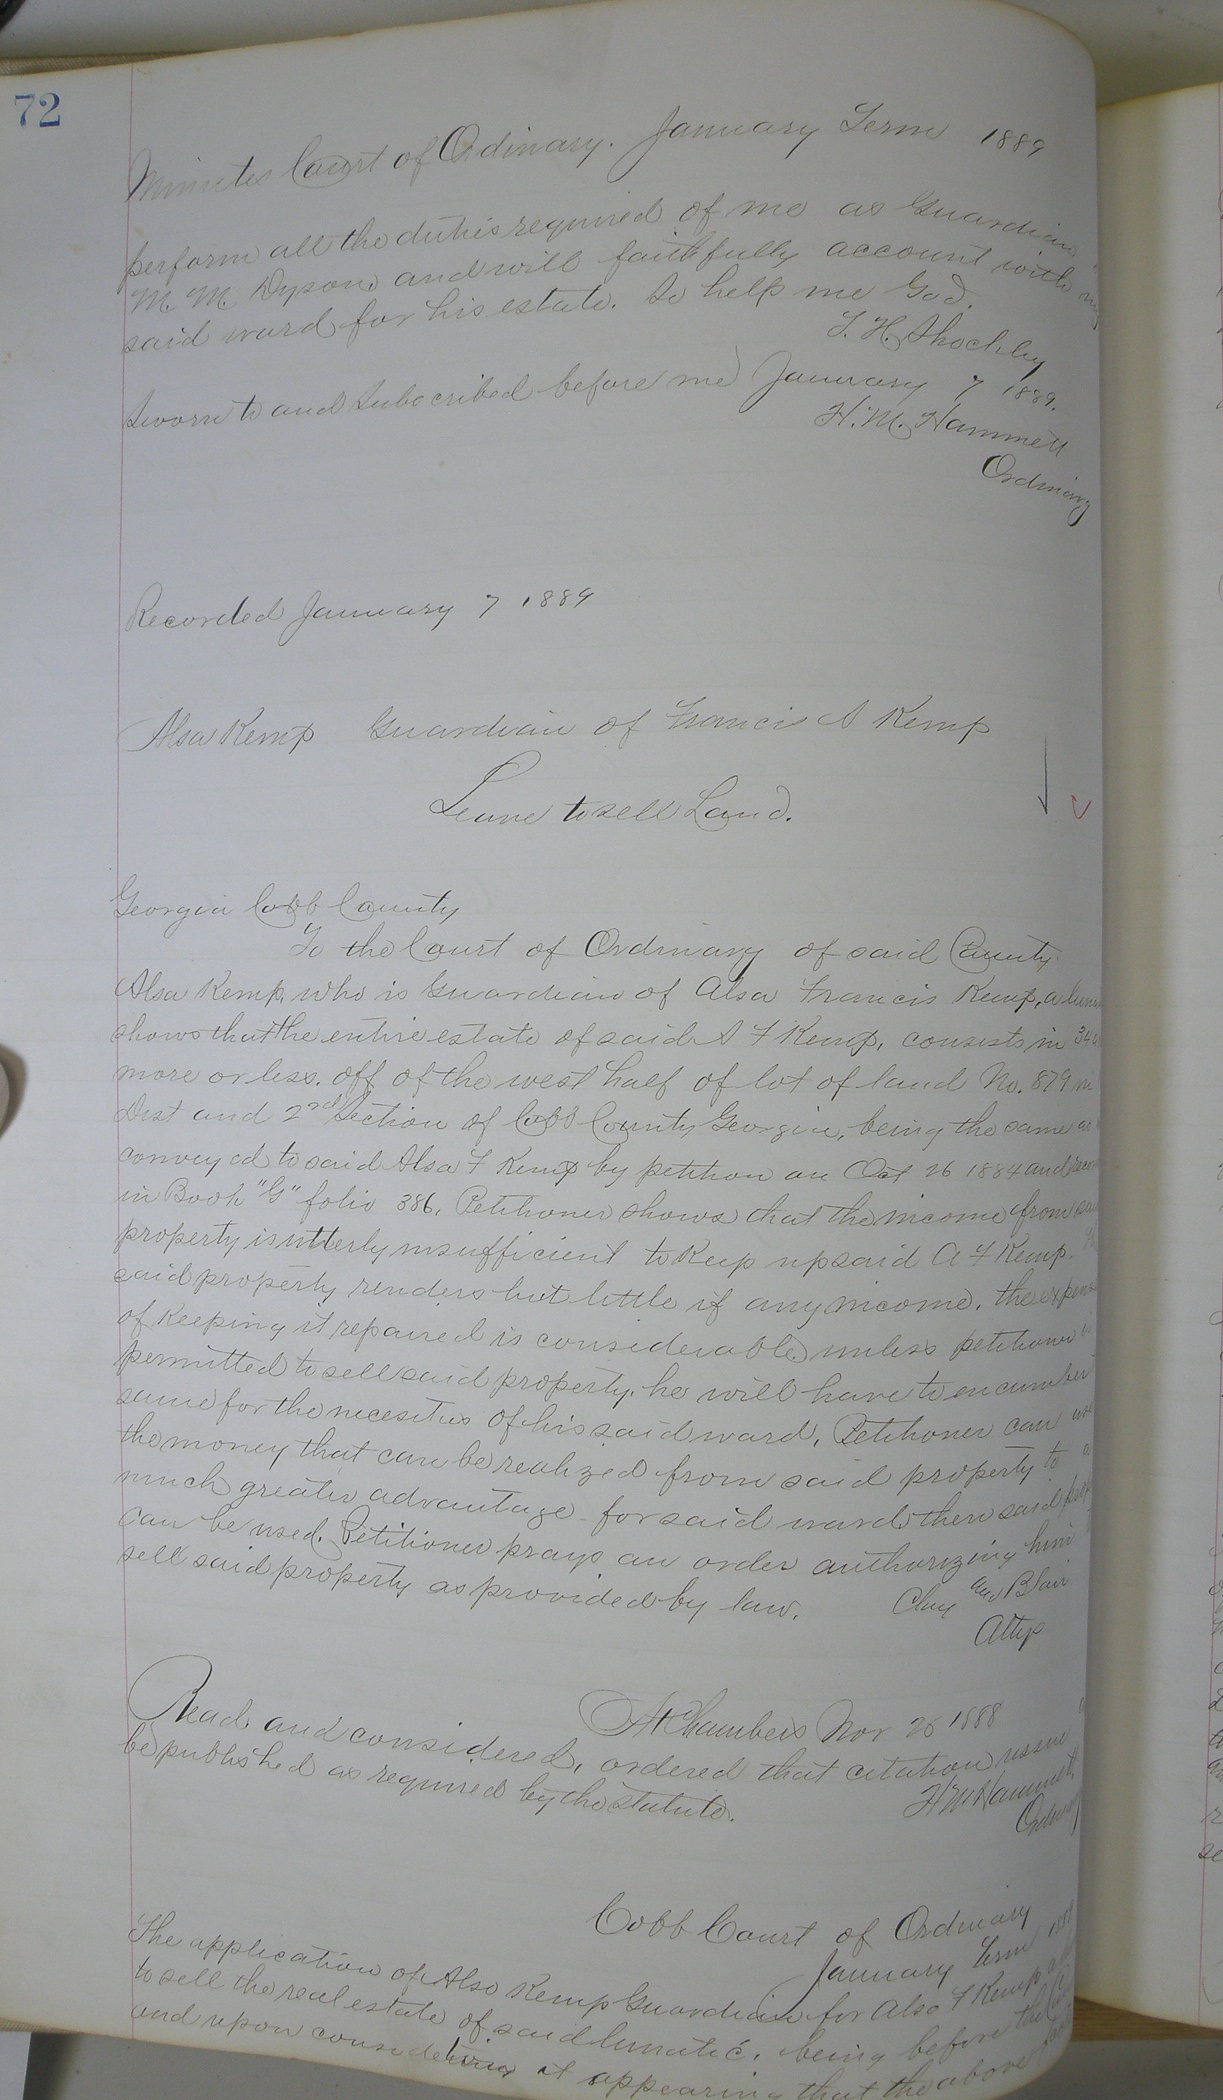 72
Minutes Court of Ordinary. January Term 1889
perform all the duties required of me as Guardian
M. M. Dyson and will faithfully account with my
said ward for his estate. So help me God.
T. H. Shockley
Sworn to and Subscribed before me January 7 1889.
H. M. Hammett
Ordinary
Recorded January 7 1889
Alsa Kemp Guardian of Francis A Kemp
Leave to sell Land.
Georgia Cobb County
To the Court of Ordinary of said County.
Alsa Kemp, who is Guardian of Alsa Francis Kemp, a
shows that the entire estate of said A F Kemp, consists in
more or less. off of the west half of lot of land No. 879 in
Dist and 2nd Section of Cobb County Georgia, being the same
conveyed to said Alsa F Kemp by petition on Oct 26 1884 and
in Book "G" folio 386. Petitioner shows that the income from
property is utterly insufficient to keep up said A F Kemp.
said property renders but little if any income, the
of keeping it repaired is considerable unless petitioner
permitted to sell said property, he will have to encumber
same for the necesities of his said ward. Petitioner can
the money that can be realized from said property to
much greater advantage for said ward then said
can be used. Petitioner prays an order authorizing him
sell said property as provided by law.
Clay and Blair
Attys
At Chambers Nov 26 1888
Read and considered, ordered that citation issue
be published as required by the statute.
H M Hammett
Ordinary
Cobb Court of Ordinary
January Term
The application of Alsa Kemp Guardian for Alsa F Kemp
to sell the real estate of said lunatic, being before
and upon considering it appearing that the above